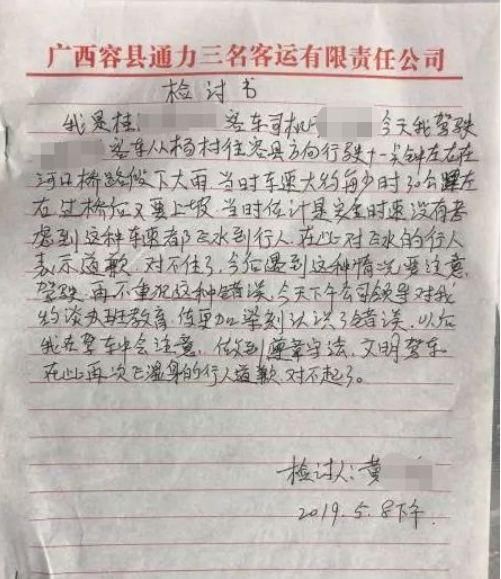 广西容县通力三名客运有限责任公司
检讨书
我是桂 客车司机 今天我驾驶
客车从杨村往容县方向行驶十一点钟左右在
河口桥路段下大雨,当时车速大约每小时30公里左
右过桥位又要上坡,当时估计是安全时速没有考
虑到这种车速都飞水到行人,在此对飞水的行人
表示道歉,对不住了,今后遇到这种情况要注意
驾驶,再不重犯这种错误,今天下午公司领导对我
约谈办班教育,使更加深刻认识了错误,以后
我在驾车中会注意,做到遵章守法,文明驾车
在此再次飞湿身的行人道歉,对不起了。
检讨人:黄
2019.5.8下午.